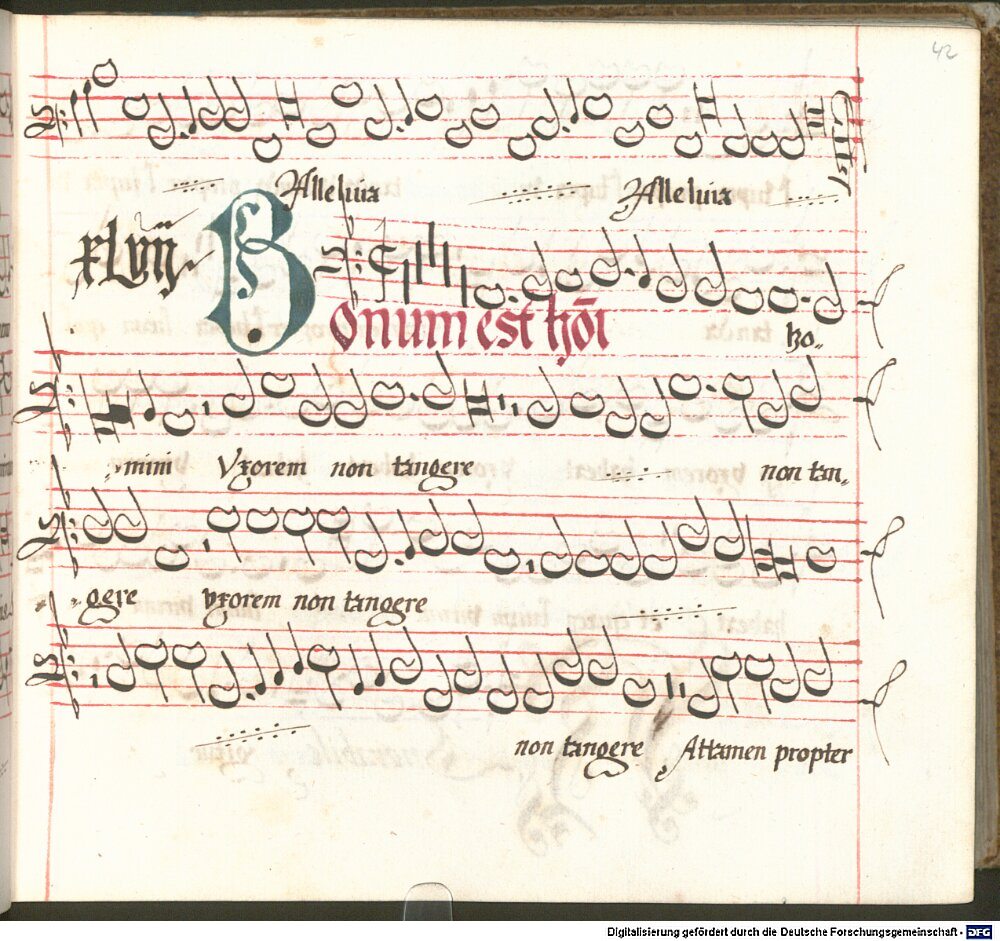 42
Alleluia Alleluia
xlvij
Bonum est hōi ho-
-mini Vxorem non tangere non tan-
-gere vxorem non tangere
non tangere Attamen propter
Digitalisierung gefördert durch die Deutsche Forschungsgemeinschaft - DFG